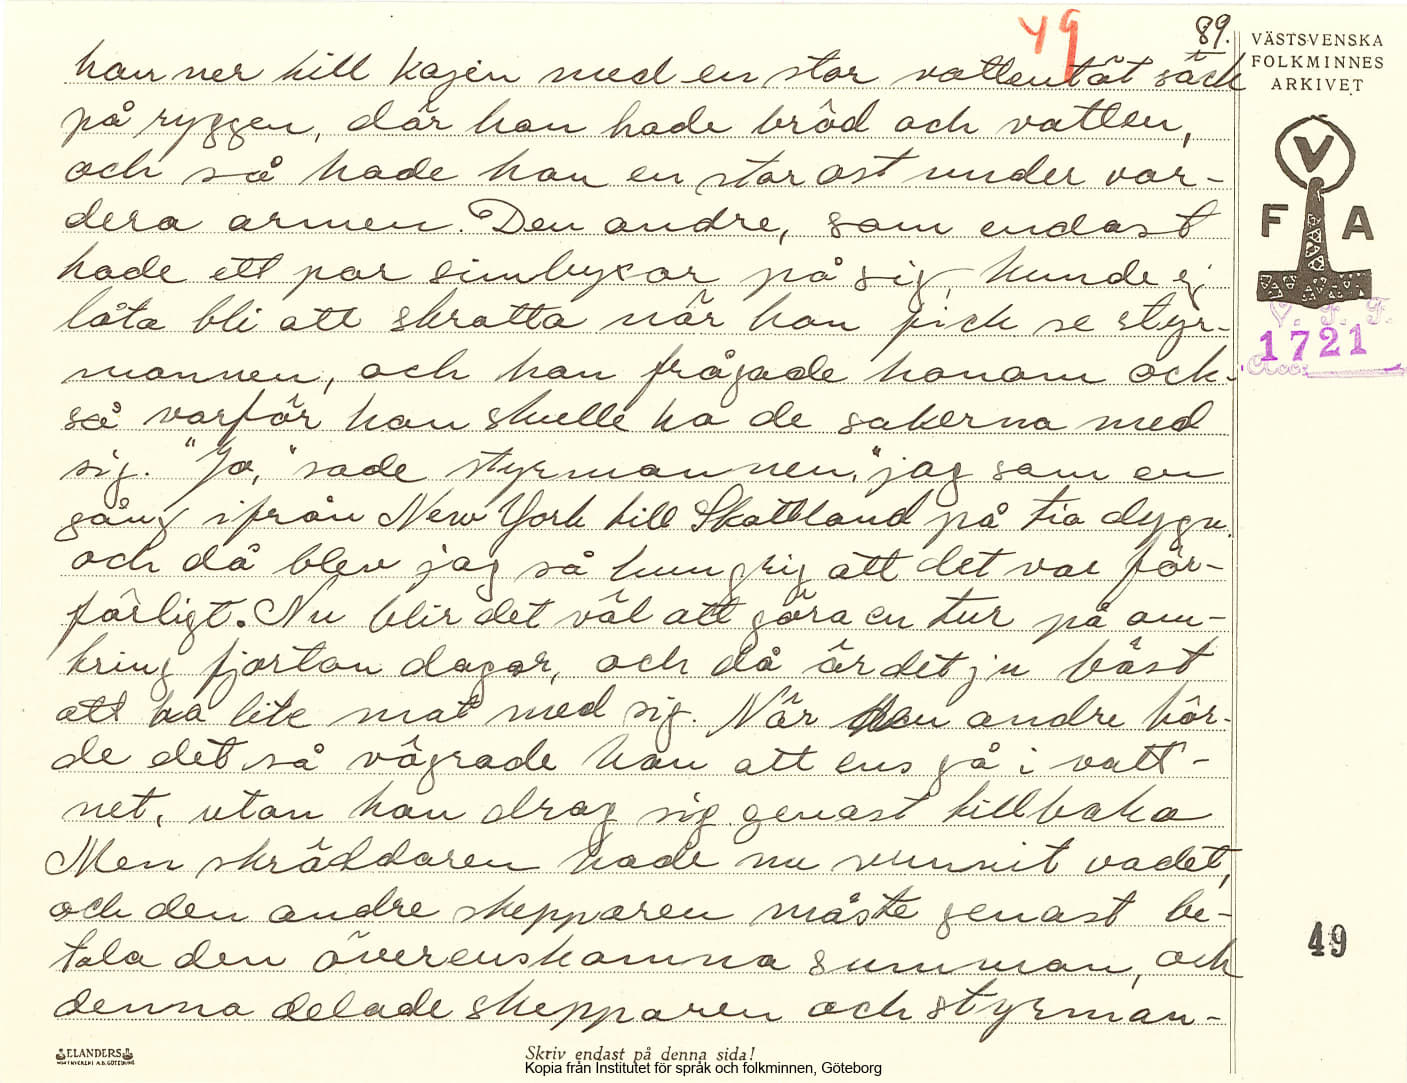 49
89.
han ner till kajen med en stor vattentät säck
på ryggen, där han hade bröd och vatten,
och så hade han en stor ost under var-
dera armen. Den andre, som endast
hade ett par simbyxor på sig, kunde ej
låta bli att skratta när han fick se styr-
mannen, och han frågade honom ock-
så varför han skulle ha de sakerna med
sig. "Jo," sade styrmannen, "jag sam en
gång ifrån New York till Skottland på tio dygn
och då blev jag så hungrig att det var för-
färligt. Nu blir det väl att göra en tur på om-
kring fjorton dagar, och då är det ju bäst
att ha lite mat med sig. När den andre hör-
de det så vägrade han att ens gå i vatt-
net, utan han drog sig genast tillbaka
Men skräddaren hade nu vunnit vadet,
och den andre skepparen måste genast be-
tala den överenskomna summan, och
denna delade skepparen och styrman-
VÄSTSVENSKA
FOLKMINNES
ARKIVET
V
F A
V. F. F.
1721
Acc.
49
ELANDERS
Skriv endast på denna sida!
Kopia från Institutet för språk och folkminnen, Göteborg